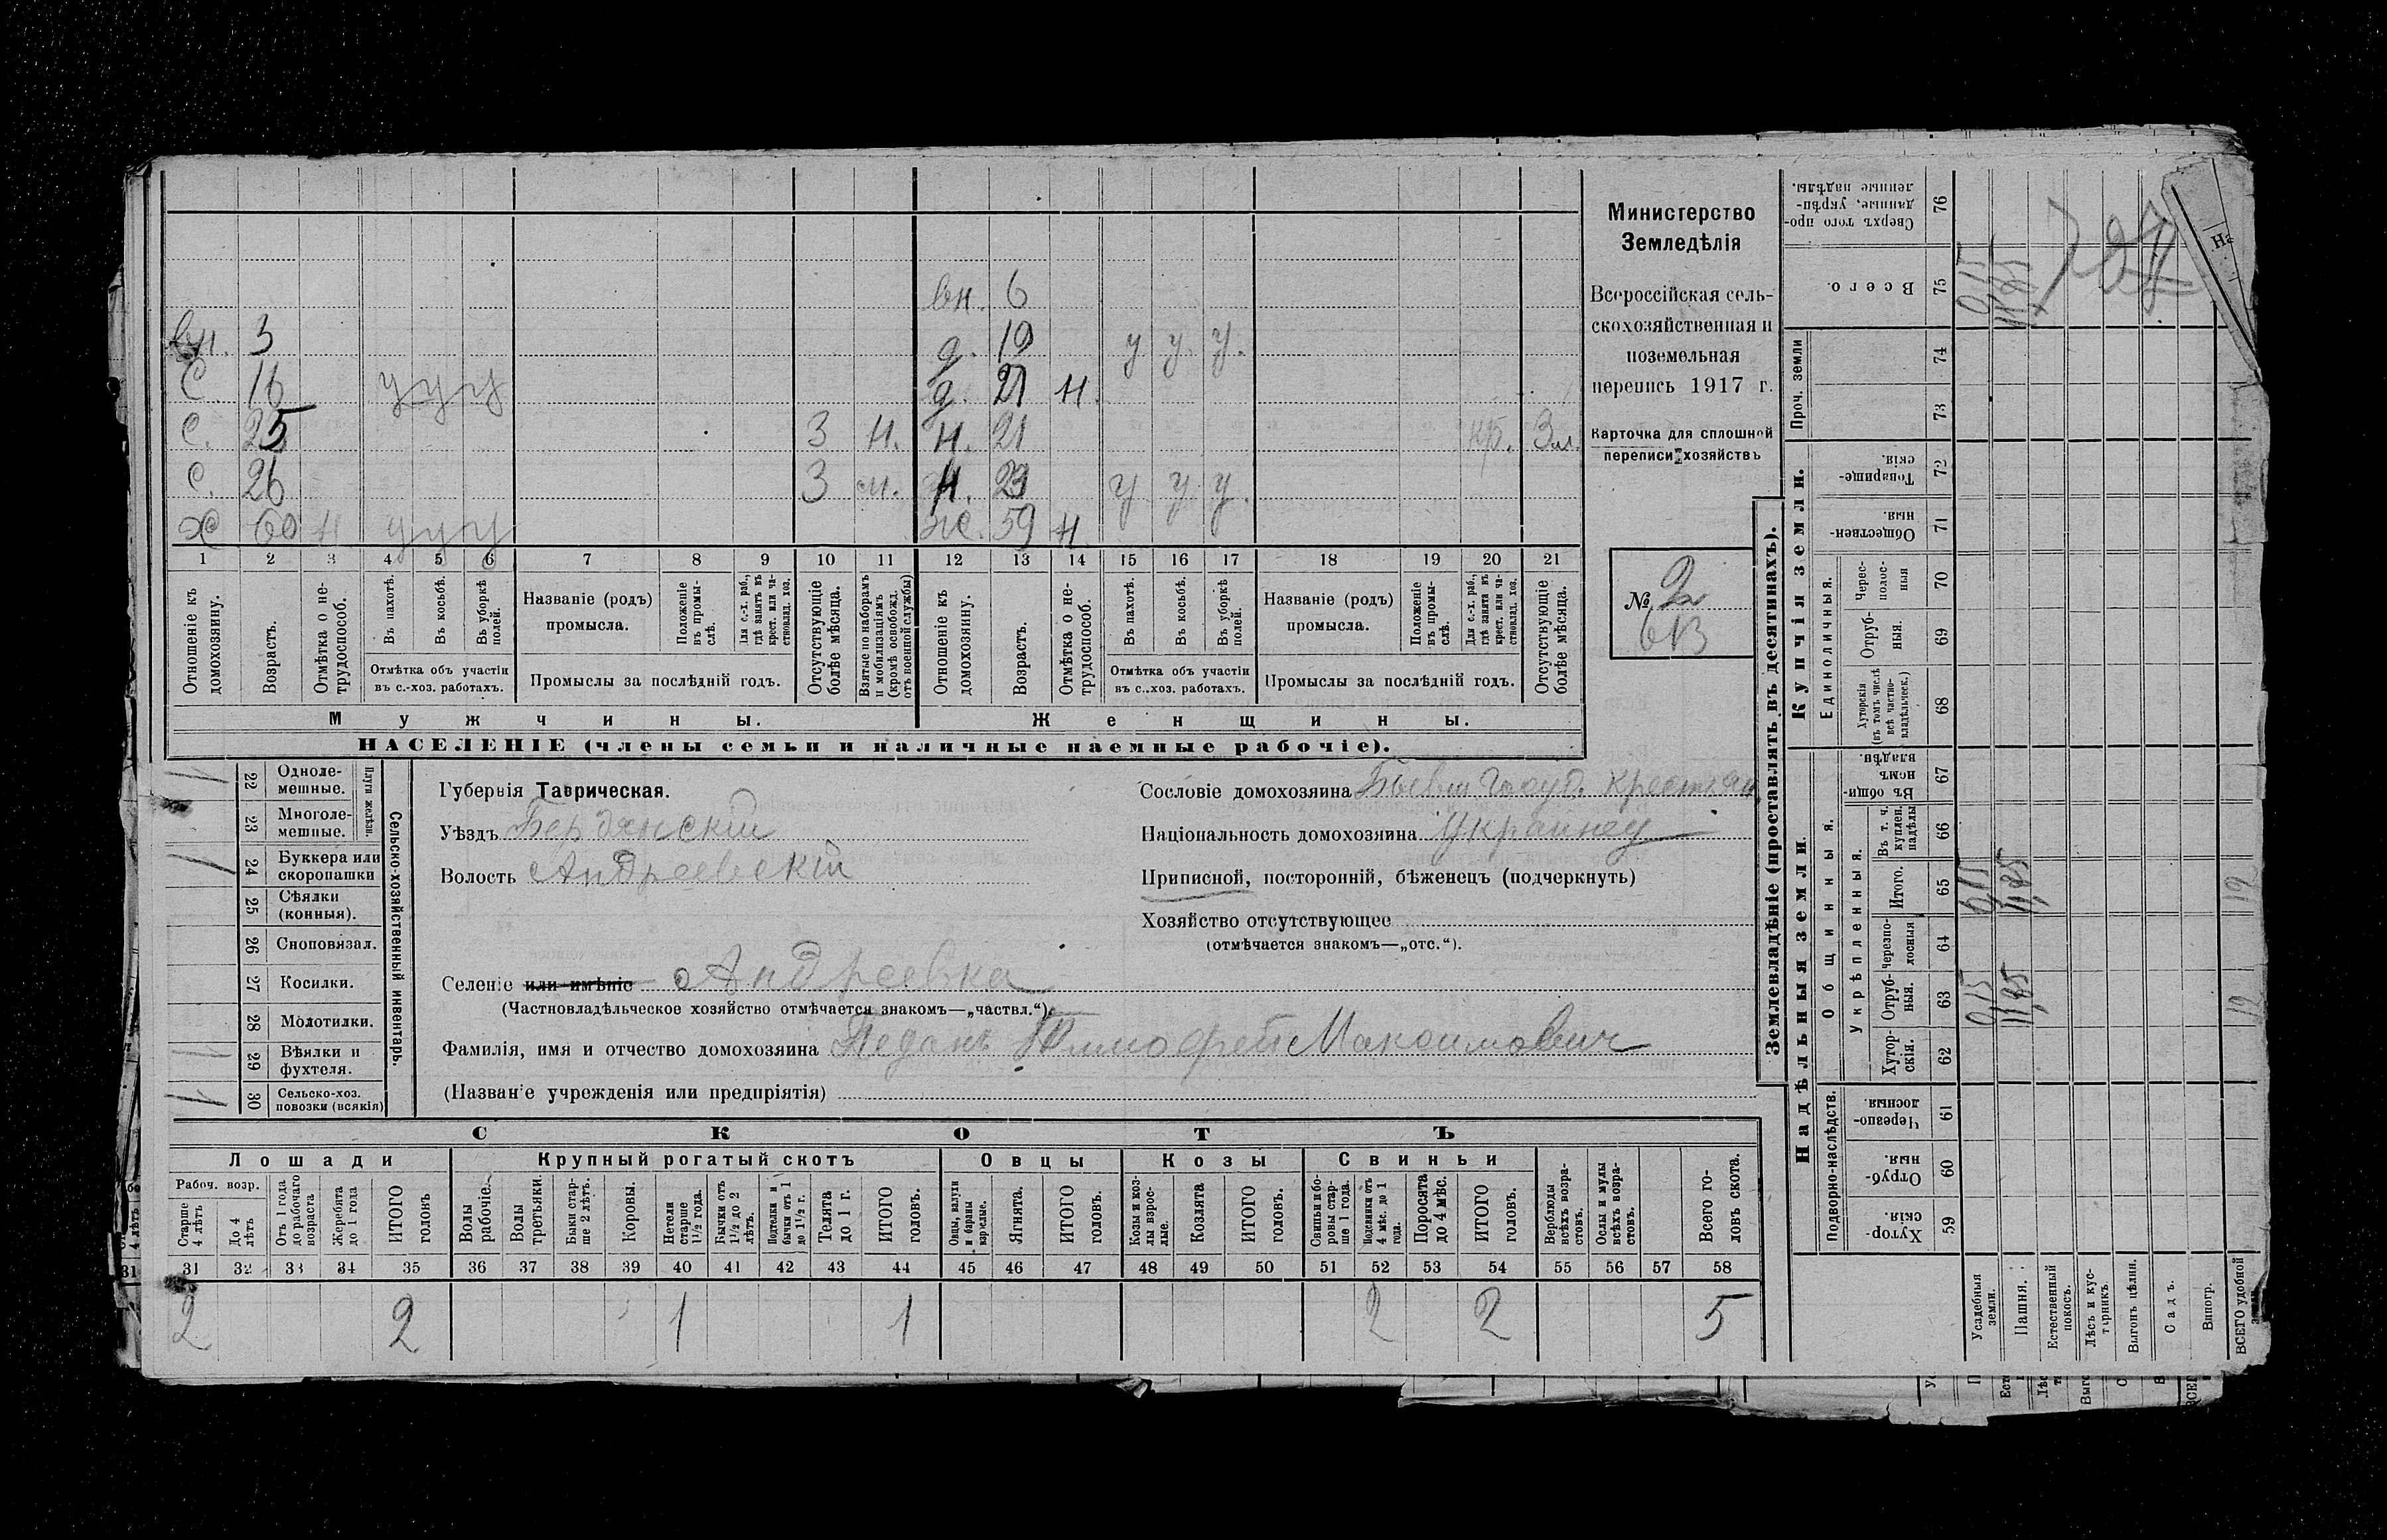 вн. 6
вн. 3 д. 19 у у. у.
С. 16 у у у д. 21 н.
С. 25 3 н. н. 21 кр. 3 м.
С. 26 3 м. н. 23 у у у.
Х 60 н у у у ж. 59 н
1 2 3 4 5 6 7 8 9 10 11 12 13 14 15 16 17 18 19 20 21
Отношеніе къ домохозяину.
Возрастъ.
Отмѣтка о не-трудоспособ.
Въ пахотѣ.
Въ косьбѣ.
Въ уборкѣ полей.
Отмѣтка объ участіи
въ с.-хоз. работахъ.
Названіе (родъ)
промысла.
Положеніе въ промы-слѣ.
Для с.-х. раб., гдѣ занятъ въ крест. или ча-ствовлад. хоз.
Промыслы за послѣдній годъ.
Отсутствующіе болѣе мѣсяца.
Взятые по наборамъ и мобилизаціямъ (кромѣ освобожд. отъ военной службы)
Отношеніе къ домохозяину.
Возрастъ.
Отмѣтка о не-трудоспособ.
Въ пахотѣ.
Въ косьбѣ.
Въ уборкѣ полей.
Отмѣтка объ участіи
въ с.-хоз. работахъ.
Названіе (родъ)
промысла.
Положеніе въ промы-слѣ.
Для с.-х. раб., гдѣ занята въ крест. или ча-ствовлад. хоз.
Промыслы за послѣдній годъ.
Отсутствующіе болѣе мѣсяца.
Мужчины. Женщины.
НАСЕЛЕНІЕ (члены семьи и наличные наемные рабочіе).
Министерство
Земледѣлія
Всероссійская сель-
скохозяйственная и
поземельная
перепись 1917 г.
Карточка для сплошной
переписи хозяйствъ
№ 2
613
1 22 Одноле-мешные.
23 Многоле-мешные.
Плуги желѣзн.
1 24 Буккера или скоропашки
25 Сѣялки (конныя).
26 Сноповязал.
27 Косилки.
28 Молотилки.
1 29 Вѣялки и фухтеля.
1 30 Сельско-хоз. повозки (всякія)
Сельско-хозяйственный инвентарь.
Губернія Таврическая.
Уѣздъ Бердянскій
Волость Андреевскій
Селеніе или имѣніе Андреевка
(Частновладѣльческое хозяйство отмѣчается знакомъ—„частвл.“).
Фамилія, имя и отчество домохозяина Педанъ Тимофей Максимович
(Названіе учрежденія или предпріятія)
Сословіе домохозяина Бывш госуд. крестьян.
Національность домохозяина Украинец
Приписной, посторонній, бѣженецъ (подчеркнуть)
Хозяйство отсутствующее
(отмѣчается знакомъ—„отс.“).
СКОТЪ
Лошади Крупный рогатый скотъ Овцы Козы Свиньи
Рабоч. возр.
Старше 4 лѣтъ
До 4 лѣтъ
Отъ 1 года до рабочаго возраста
Жеребята до 1 года
ИТОГО головъ
Волы рабочіе.
Волы третьяки.
Быки стар-ше 2 лѣтъ.
Коровы.
Нетели старше 1½ года.
Бычки отъ 1½ до 2 лѣтъ.
Подтелки и бычки отъ 1 до 1½ г.
Телята до 1 г.
ИТОГО головъ.
Овцы, валухи и бараны взрослые.
Ягнята.
ИТОГО головъ.
Козы и коз-лы взрос-лые.
Козлята
ИТОГО головъ.
Свиньи и бо-ровы стар-ше 1 года.
Подсвинки отъ 4 мѣс. до 1 года.
Поросята до 4 мѣс.
ИТОГО головъ.
Верблюды всѣхъ возра-стовъ.
Ослы и мулы всѣхъ возра-стовъ.
Всего го-ловъ скота.
31 32 33 34 35 36 37 38 39 40 41 42 43 44 45 46 47 48 49 50 51 52 53 54 55 56 57 58
2 2 1 1 2 2 5
Землевладѣніе (проставлять въ десятинахъ).
Надѣльныя земли.
Купчія земли.
Проч. земли
Подворно-наслѣдств.
Общинныя.
Укрѣпленныя.
Единоличныя.
Хутор-скія. 59
Отруб-ныя. 60
Черезпо-лосныя. 61
Хутор-скія. 62
Отруб-ныя. 63
Черезпо-лосныя 64
Итого. 65
Въ т. ч. куплен. надѣлы 66
Въ общи-номъ владѣн. 67
Хуторскія (въ томъ числѣ всѣ частно-владѣльческ.) 68
Отруб-ныя. 69
Черес-полос-ныя 70
Обществен-ныя. 71
Товарище-скія. 72
73
74
Всего. 75
Сверхъ того про-данные, укрѣп-ленные надѣлы. 76
Усадебныя земли. 0,15 0,15 0,15
Пашня. 11,85 11,85 11,85
Естественный покосъ.
Лѣсъ и кус-тарникъ
Выгонъ цѣлин.
Садъ.
Виногр.
ВСЕГО удобной 12 12
727